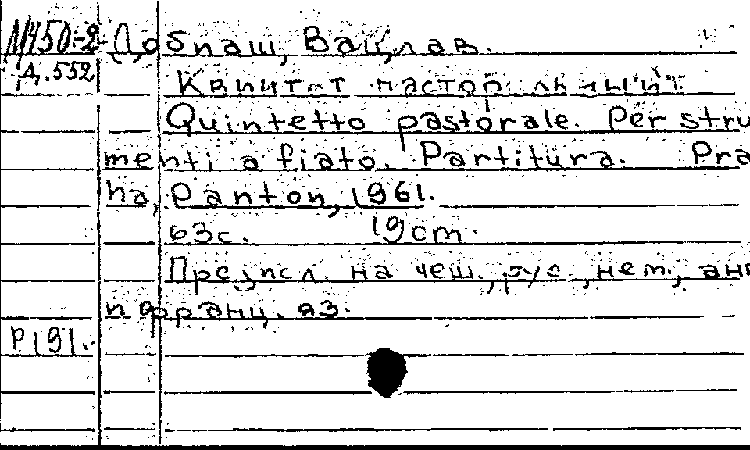 М450-2 Добиаш, Вацлав.
Д.552
Квинтет пасторальный
Quintetto pastorale. Per stru
menti a fiato. Partitura. Pra
ha, Panton, 1961.
63с. 19cm.
Предисл. на чеш., рус., нем., анг
и франц. яз.
Р191.